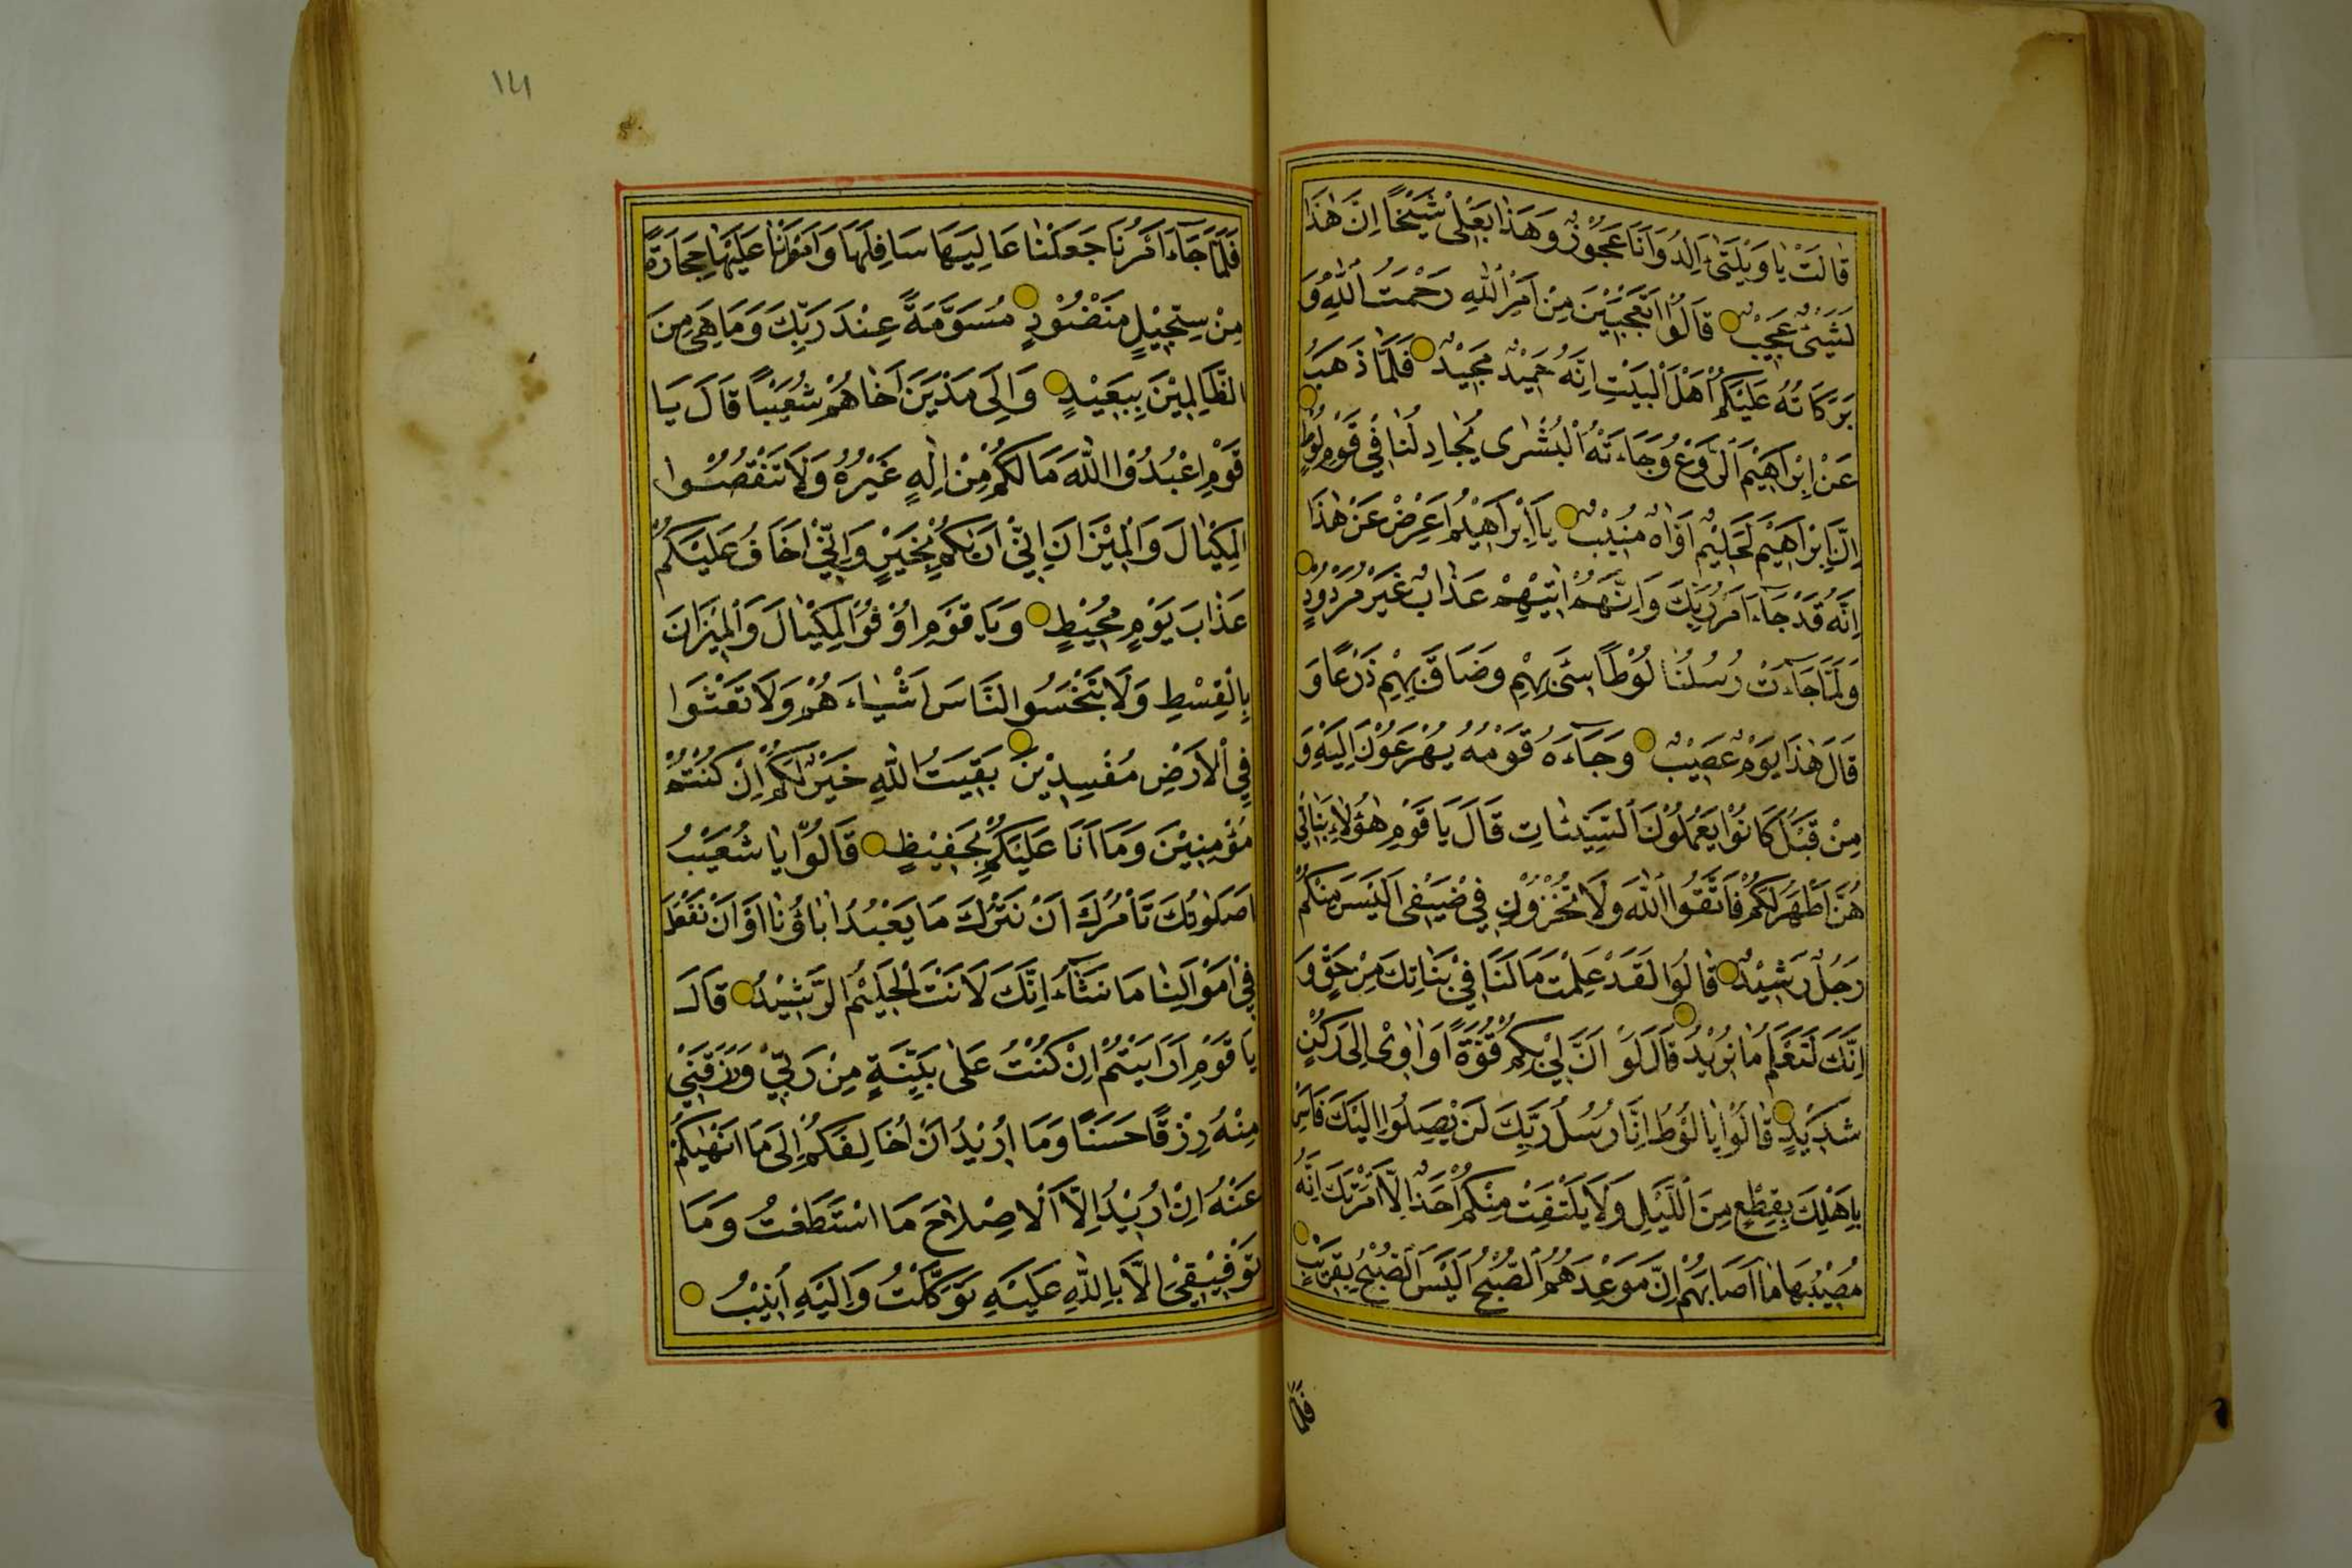 قَالَتْ يَا وَيْلَتٰى ءَاَلِدُ وَاَنَا عَجُوْزٌ وَهَذَا بَعْلٖى شَيْخًا اِنَّ هٰذَا
لَشَيْئٌ عَجٖيبٌ قَالُوْا اَتَعْجَبٖيْنَ مِنْ اَمْرِ اللّٰهِ رَحْمَتُ اللّٰهِ وَ
بَرَكَاتُهُ عَلَيْكُمْ اَهْلَ الْبَيْتِ اِنَّهُ حَمٖيْدٌ مَجٖيْدٌ فَلَمَّا ذَهَبَ
عَنْ اِبْرَاهٖيْمَ الرَّوْعُ وَجَاءَتْهُ الْبُشْرٰى يُجَادِلُنَا فٖي قَوْمِ لُوْطٍ
اِنَّ اِبْرَاهٖيْمَ لَحَلٖيْمٌ اَوَّاهٌ مُنٖيْبٌ يَا اِبْرَاهٖيْمُ اَعْرِضْ عَنْ هٰذَا
اِنَّهُ قَدْ جَاءَ اَمْرُ رَبِّكَ وَاِنَّهُمْ اٰتٖيْهِمْ عَذَابٌ غَيْرُ مَرْدُوْدٍ
وَلَمَّا جَاءَتْ رُسُلُنَا لُوْطًا سٖئَ بِهِمْ وَضَاقَ بِهِمْ ذَرْعًا وَ
قَالَ هٰذَا يَوْمٌ عَصٖيْبٌ وَجَاءَهُ قَوْمُهُ يُهْرَعُوْنَ اِلَيْهِ وَ
مِنْ قَبْلُ كَانُوْا يَعْمَلُوْنَ السَّيِّئَاتِ قَالَ يَا قَوْمِ هٰؤُلَاءِ بَنَاتٖي
هُنَّ اَطْهَرُ لَكُمْ فَاتَّقُوا اللّٰهَ وَلَا تُخْزُوْنِ فٖي ضَيْفٖى اَلَيْسَ مِنْكُمْ
رَجُلٌ رَشٖيْدٌ قَالُوْا لَقَدْ عَلِمْتَ مَا لَنَا فٖيْ بَنَاتِكَ مِنْ حَقٍّ وَ
اِنَّكَ لَتَعْلَمُ مَا نُرٖيْدُ قَالَ لَوْ اَنَّ لٖيْ بِكُمْ قُوَّةً اَوْ اٰوٖىْ اِلٰى رُكْنٍ
شَدٖيْدٍ قَالُوْا يَا لُوْطُ اِنَّا رُسُلُ رَبِّكَ لَنْ يَصِلُوْا اِلَيْكَ فَاَسْرِ
بِاَهْلِكَ بِقِطْعٍ مِنَ اللَّيْلِ وَلَا يَلْتَفِتْ مِنْكُمْ اَحَدٌ اِلَّا امْرَاَتَكَ اِنَّهُ
مُصٖيْبُهَا مَا اَصَابَهُمْ اِنَّ مَوْعِدَهُمُ الصُّبْحُ اَلَيْسَ الصُّبْحُ بِقَرٖيْبٍ
فَلَمَّا
١٤١
فَلَمَّا جَاءَ اَمْرُنَا جَعَلْنَا عَالِيَهَا سَافِلَهَا وَاَمْطَرْنَا عَلَيْهَا حِجَارَةً
مِنْ سِجّٖيْلٍ مَنْضُوْدٍ مُسَوَّمَةً عِنْدَ رَبِّكَ وَمَا هِيَ مِنَ
الظَّالِمٖيْنَ بِبَعٖيْدٍ وَاِلٰى مَدْيَنَ اَخَاهُمْ شُعَيْبًا قَالَ يَا
قَوْمِ اعْبُدُوا اللّٰهَ مَا لَكُمْ مِنْ اِلٰهٍ غَيْرُهُ وَلَا تَنْقُصُوا
الْمِكْيَالَ وَالْمٖيْزَانَ اِنّٖيْ اَرٰيكُمْ بِخَيْرٍ وَاِنّٖيْ اَخَافُ عَلَيْكُمْ
عَذَابَ يَوْمٍ مُحٖيْطٍ وَيَا قَوْمِ اَوْفُوا الْمِكْيَالَ وَالْمٖيْزَانَ
بِالْقِسْطِ وَلَا تَبْخَسُوا النَّاسَ اَشْيَاءَهُمْ وَلَا تَعْثَوْا
فِي الْاَرْضِ مُفْسِدٖيْنَ بَقِيَّتُ اللّٰهِ خَيْرٌ لَكُمْ اِنْ كُنْتُمْ
مُؤْمِنٖيْنَ وَمَا اَنَا عَلَيْكُمْ بِحَفٖيْظٍ قَالُوْا يَا شُعَيْبُ
اَصَلٰوتُكَ تَاْمُرُكَ اَنْ نَتْرُكَ مَا يَعْبُدُ اٰبَاؤُنَا اَوْ اَنْ نَفْعَلَ
فٖيْ اَمْوَالِنَا مَا نَشَاءُ اِنَّكَ لَاَنْتَ الْحَلٖيْمُ الرَّشٖيْدُ قَالَ
يَا قَوْمِ اَرَاَيْتُمْ اِنْ كُنْتُ عَلٰى بَيِّنَةٍ مِنْ رَبّٖيْ وَرَزَقَنٖيْ
مِنْهُ رِزْقًا حَسَنًا وَمَا اُرٖيْدُ اَنْ اُخَالِفَكُمْ اِلٰى مَا اَنْهٰيكُمْ
عَنْهُ اِنْ اُرٖيْدُ اِلَّا الْاِصْلَاحَ مَا اسْتَطَعْتُ وَمَا
تَوْفٖيْقٖيْ اِلَّا بِاللّٰهِ عَلَيْهِ تَوَكَّلْتُ وَاِلَيْهِ اُنٖيْبُ